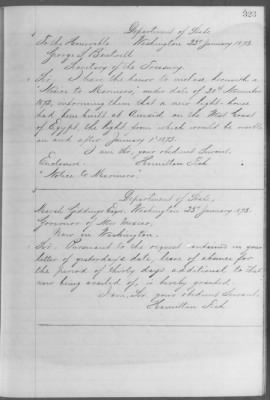 323
Department of State
To the Honorable Washington 23d January 1873.
George S. Boutwell
Secretary of the Treasury.
Sir: I have the honor to enclose herewith a
"Notice to Mariners," under date of 20th November
1872, informing them that a new light-house
had been built at on the West Coast
of Egypt, the light from which would be visible
on and after January 1st 1873.
I am Sir, your obedient Servant.
Enclosure Hamilton Fish
"Notice to Mariners."
Department of State,
Marsh Giddings Esqre. Washington 23d January 1873.
Governor of New Mexico,
Now in Washington.
Sir: Pursuant to the request contained in your
letter of yesterday's date, leave of absence for
the period of thirty days additional to that
now being availed of, is hereby granted.
I am, Sir, your obedient Servant,
Hamilton Fish